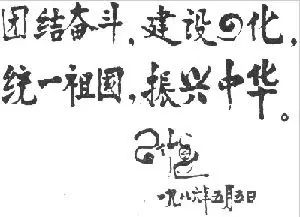 团结奋斗，建设四化，
统一祖国，振兴中华。
一九八六年五月五日